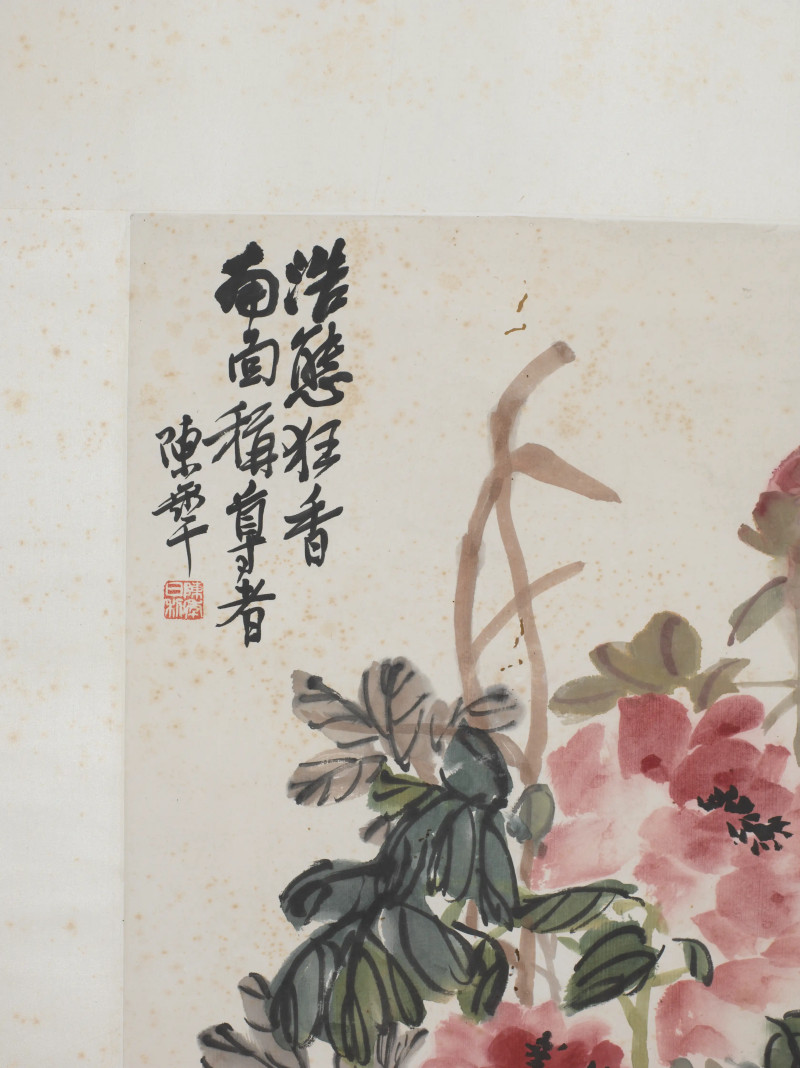 浩態狂香
南面稱尊者
陳秊